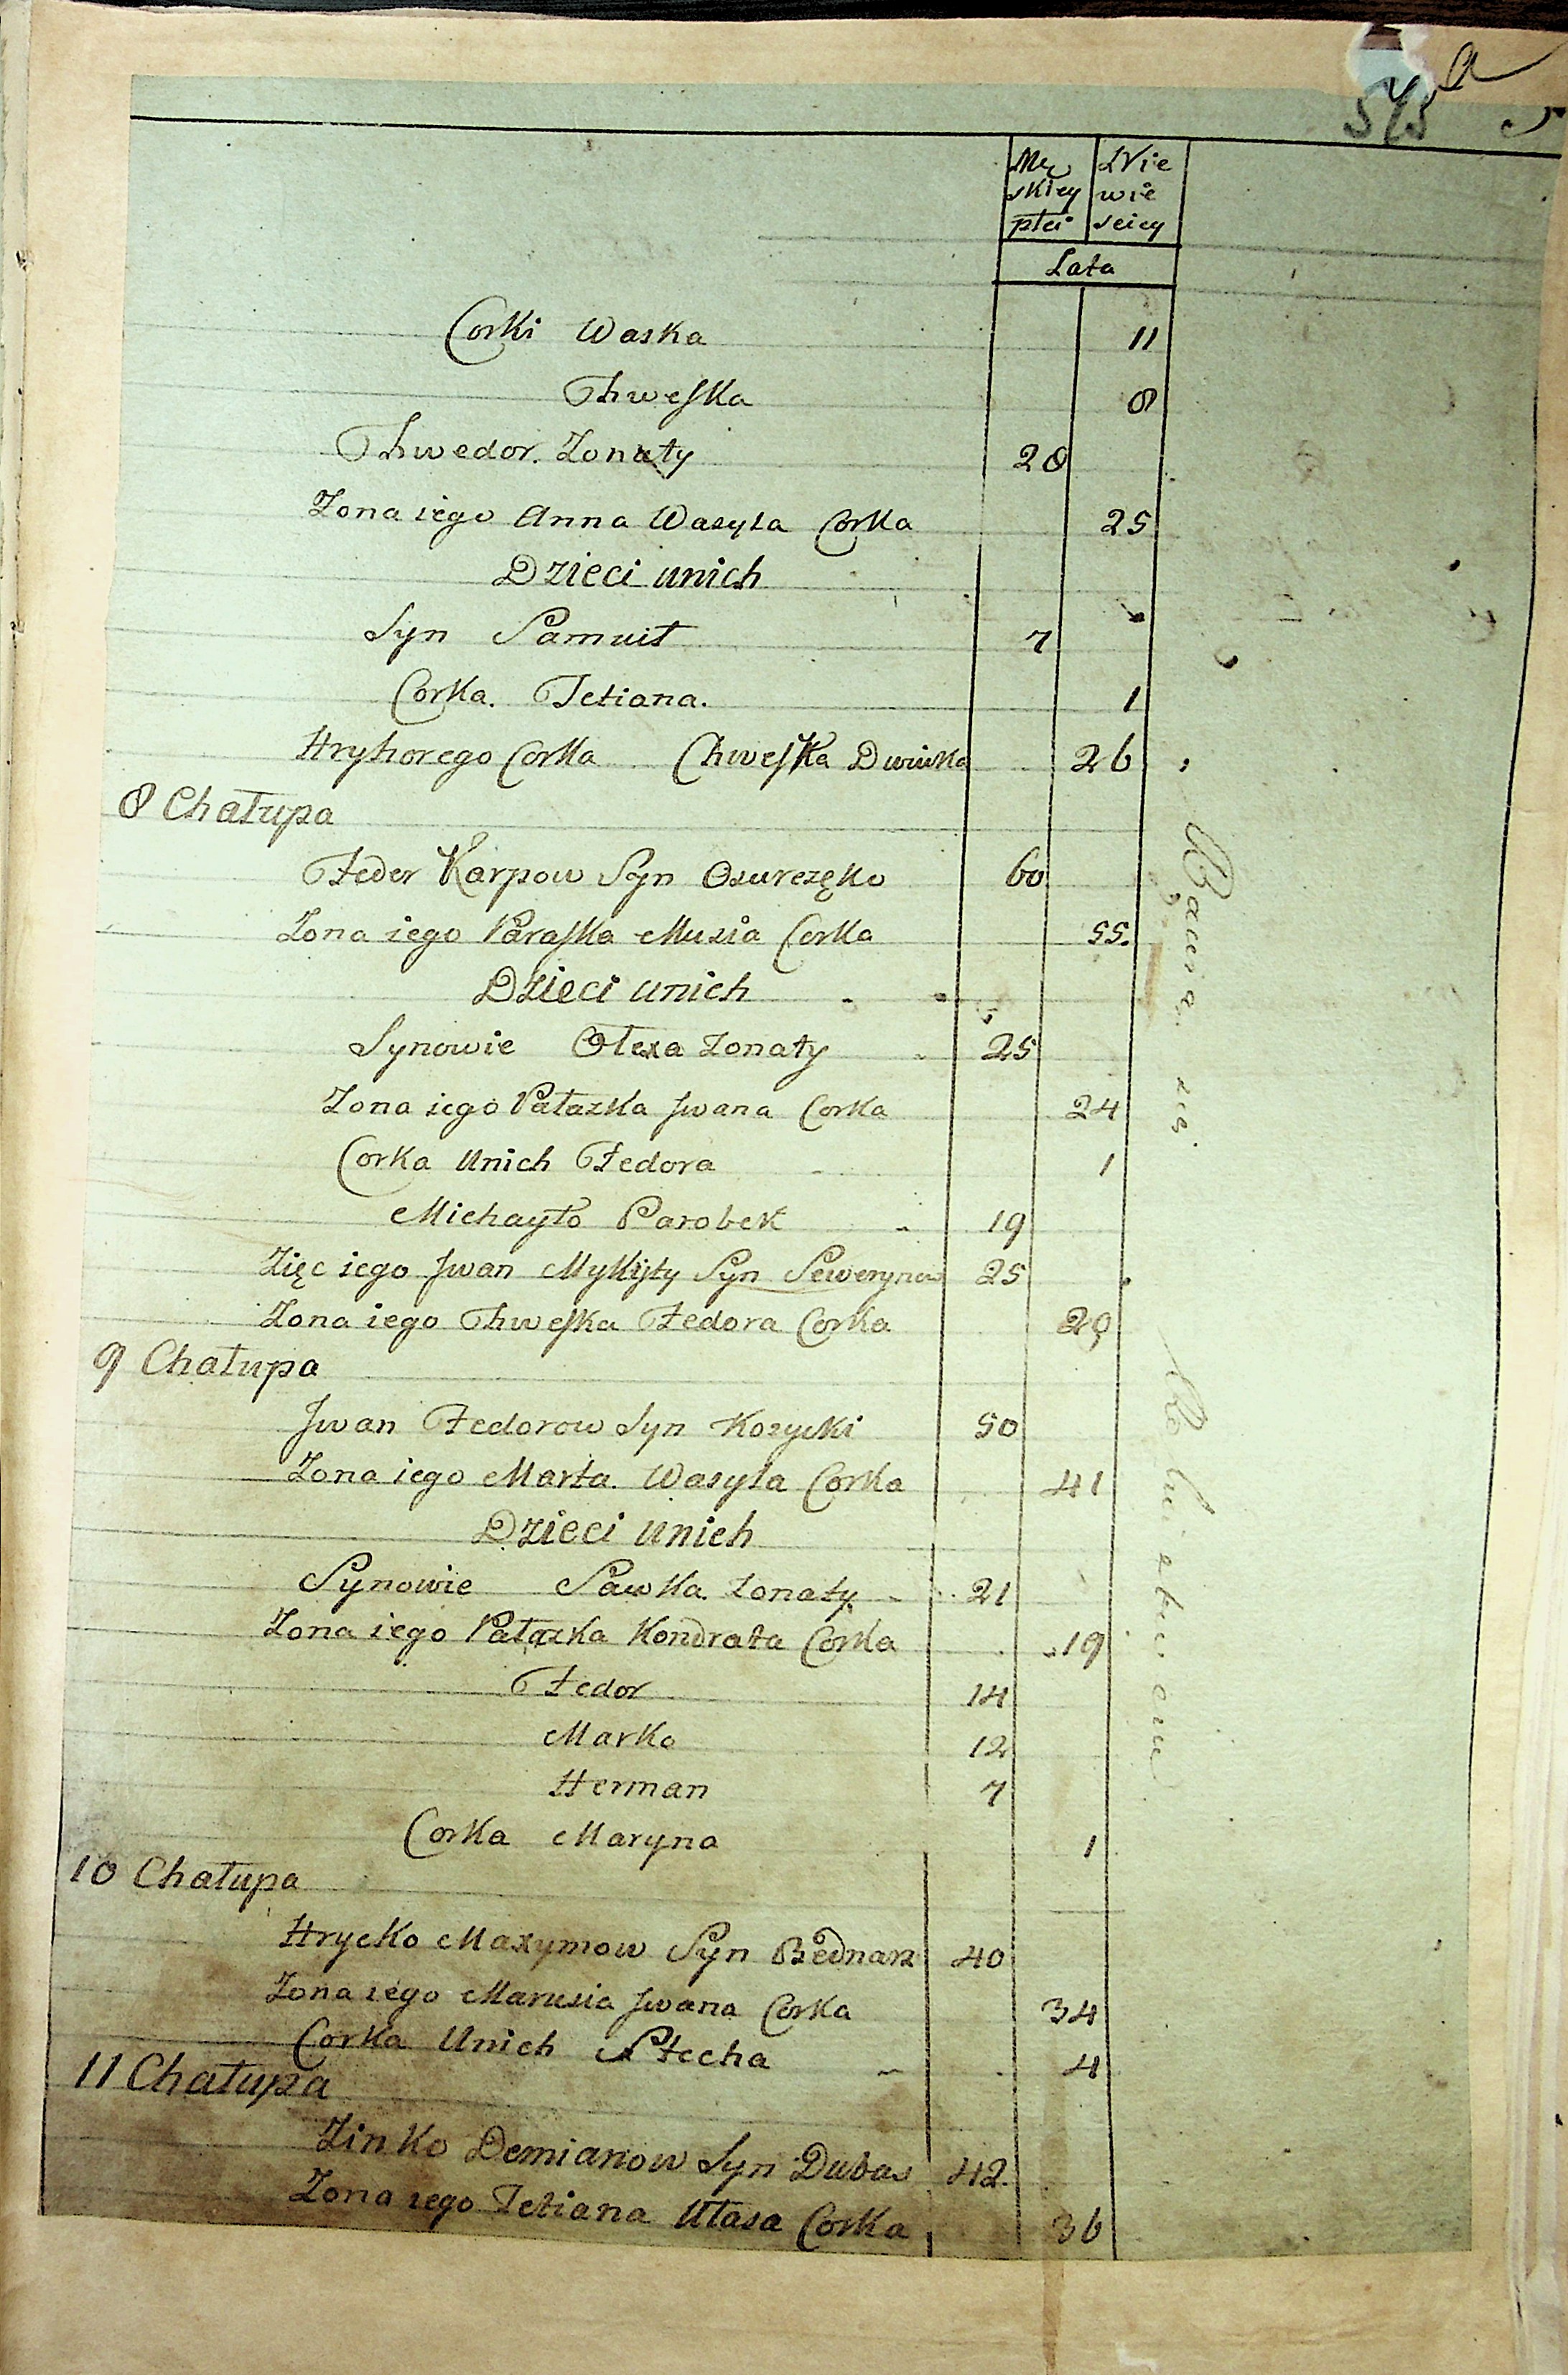 545 a 5
Mę Nie
skiey wie
płci sciey
Lata
Corki Waska 11
Chweska 8
Chwedor. Zonaty 28
Zona iego Anna Wasyla Corka 25
Dzieci unich
Syn Samuił 7
Corka. Tetiana. 1
Hryhorego Corka Chweska Dwiuka 26
8 Chałupa
Fedor Karpow Syn 60
Zona iego Paraska Musia Corka 55.
Dzieci unich
Synowie Ołexa Zonaty 25
Zona iego Pałazka Jwana Corka 24
Corka Unich Fedora 1
Michayło Parobek 19
Zięc iego Jwan Mykity Syn Sewerynow 25
Zona iego Chweska Fedora Corka 29
9 Chałupa
Jwan Fedorow Syn Kozycki 50
Zona iego Marta. Wasyla Corka 41
Dzieci Unich
Synowie Sawka. Zonaty. 21
Zona iego Pałazka Kondrata Corka 19
Fedor 14
Marko 12
Herman 7
Corka Maryna 1
10 Chałupa
Hrycko Maxymow Syn Bednarz 40
Zona iego Marusia Jwana Corka 34
Corka Unich Stecha 4
11 Chałupa
Zinko Demianow Syn Dubas 42.
Zona iego Tetiana Ułasa Corka 36